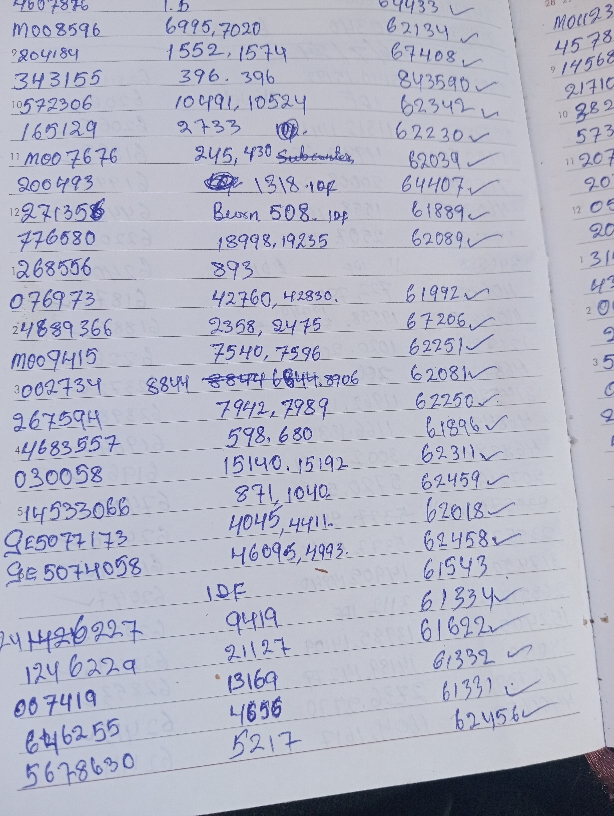 4607876 I.D 64433 ✓
M008596 6995,7020 62134 ✓
204184 1552, 1574 67408 ✓
343155 396. 396 843590 ✓
10 572306 10491, 10524 62342 ✓
165129 2733 62230 ✓
11 M007676 245, 430 62039 ✓
200493 1318. IDF 64407 ✓
12 271356 508. IDF 61889 ✓
776580 18998, 19235 62089 ✓
1 268556 893
076973 42760, 42830. 61992 ✓
2 4889366 2358, 2475 67206 ✓
M009415 7540, 7596 62251 ✓
3 002734 8844 8906 62081 ✓
267594 7942, 7989 62250 ✓
4 4683557 598. 680 61896 ✓
030058 15140. 15192 62311 ✓
5 14533066 871, 1040 62459 ✓
GE5077173 4045, 4411. 62018 ✓
GE5074058 46095, 4993. 62458 ✓
IDF 61543
9419 61334 ✓
1246229 21127 61622 ✓
007419 13169 61332 ✓
6446255 4656 61331 ✓
5678630 5217 62456 ✓